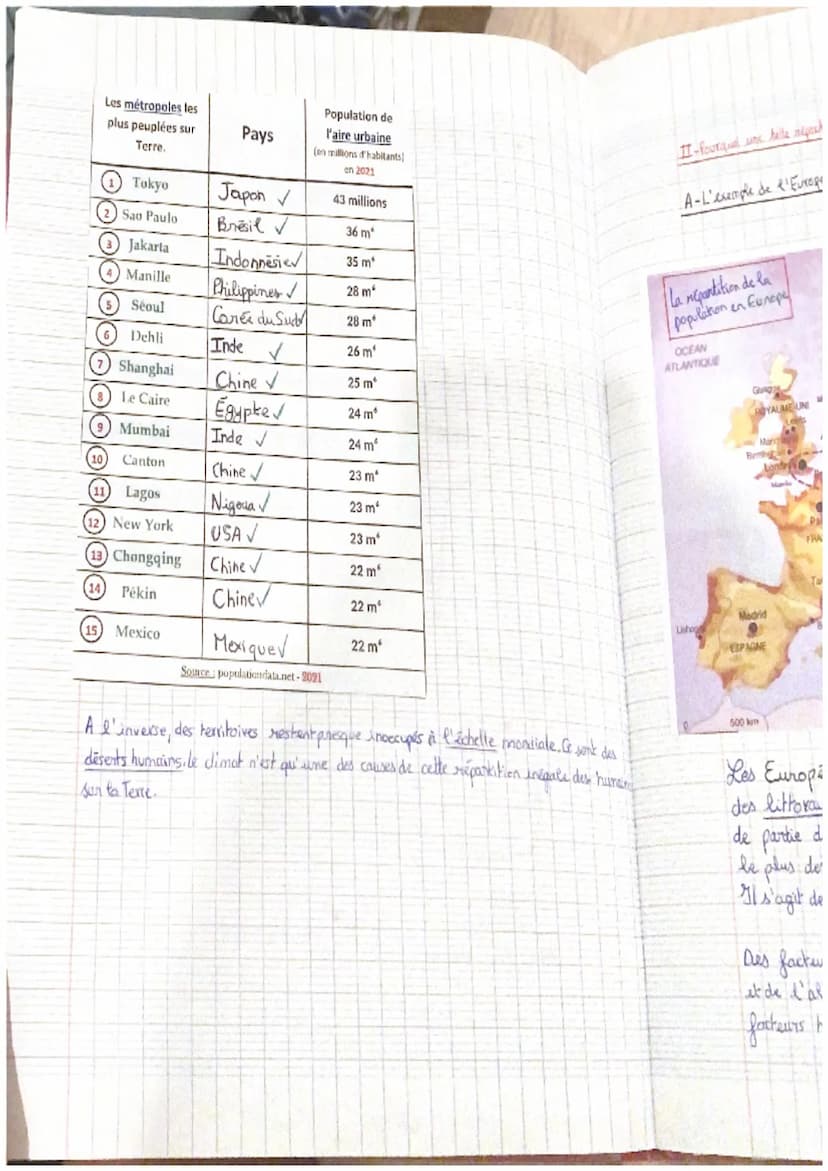 Les métropoles les plus peuplées sur Terre.
Pays
Population de l'aire urbaine (en millions d'habitants) en 2021
1 Tokyo Japon ✓ 43 millions
2 Sao Paulo Brésil ✓ 36 mⁱ
3 Jakarta Indonnésie ✓ 35 mⁱ
4 Manille Philippines ✓ 28 mⁱ
5 Séoul Corée du Sud ✓ 28 mⁱ
6 Dehli Inde ✓ 26 mⁱ
7 Shanghai Chine ✓ 25 mⁱ
8 Le Caire Égypte ✓ 24 mⁱ
9 Mumbai Inde ✓ 24 mⁱ
10 Canton Chine ✓ 23 mⁱ
11 Lagos Nigeria ✓ 23 mⁱ
12 New York USA ✓ 23 mⁱ
13 Chongqing Chine ✓ 22 mⁱ
14 Pékin Chine ✓ 22 mⁱ
15 Mexico Mexique ✓ 22 mⁱ
Source : populationdata.net - 2021
A l'inverse, des territoires restent presque inoccupés à l'échelle mondiale. Ce sont des
déserts humains. Le climat n'est qu'une des causes de cette répartition inégale des humains
sur la Terre.
II - Pourquoi une telle
A - L'exemple de l'Europe
La répartition de la
population en Europe
OCÉAN
ATLANTIQUE
Glasgow
ROYAUME-UNI
Leeds
Birmingham
Londres
Manche
FRA
Madrid
Lisbonne
ESPAGNE
0 500 km
Les Europé
des littorau
de partie d
le plus de
Il s'agit de
Des facteu
et de l'al
facteurs h